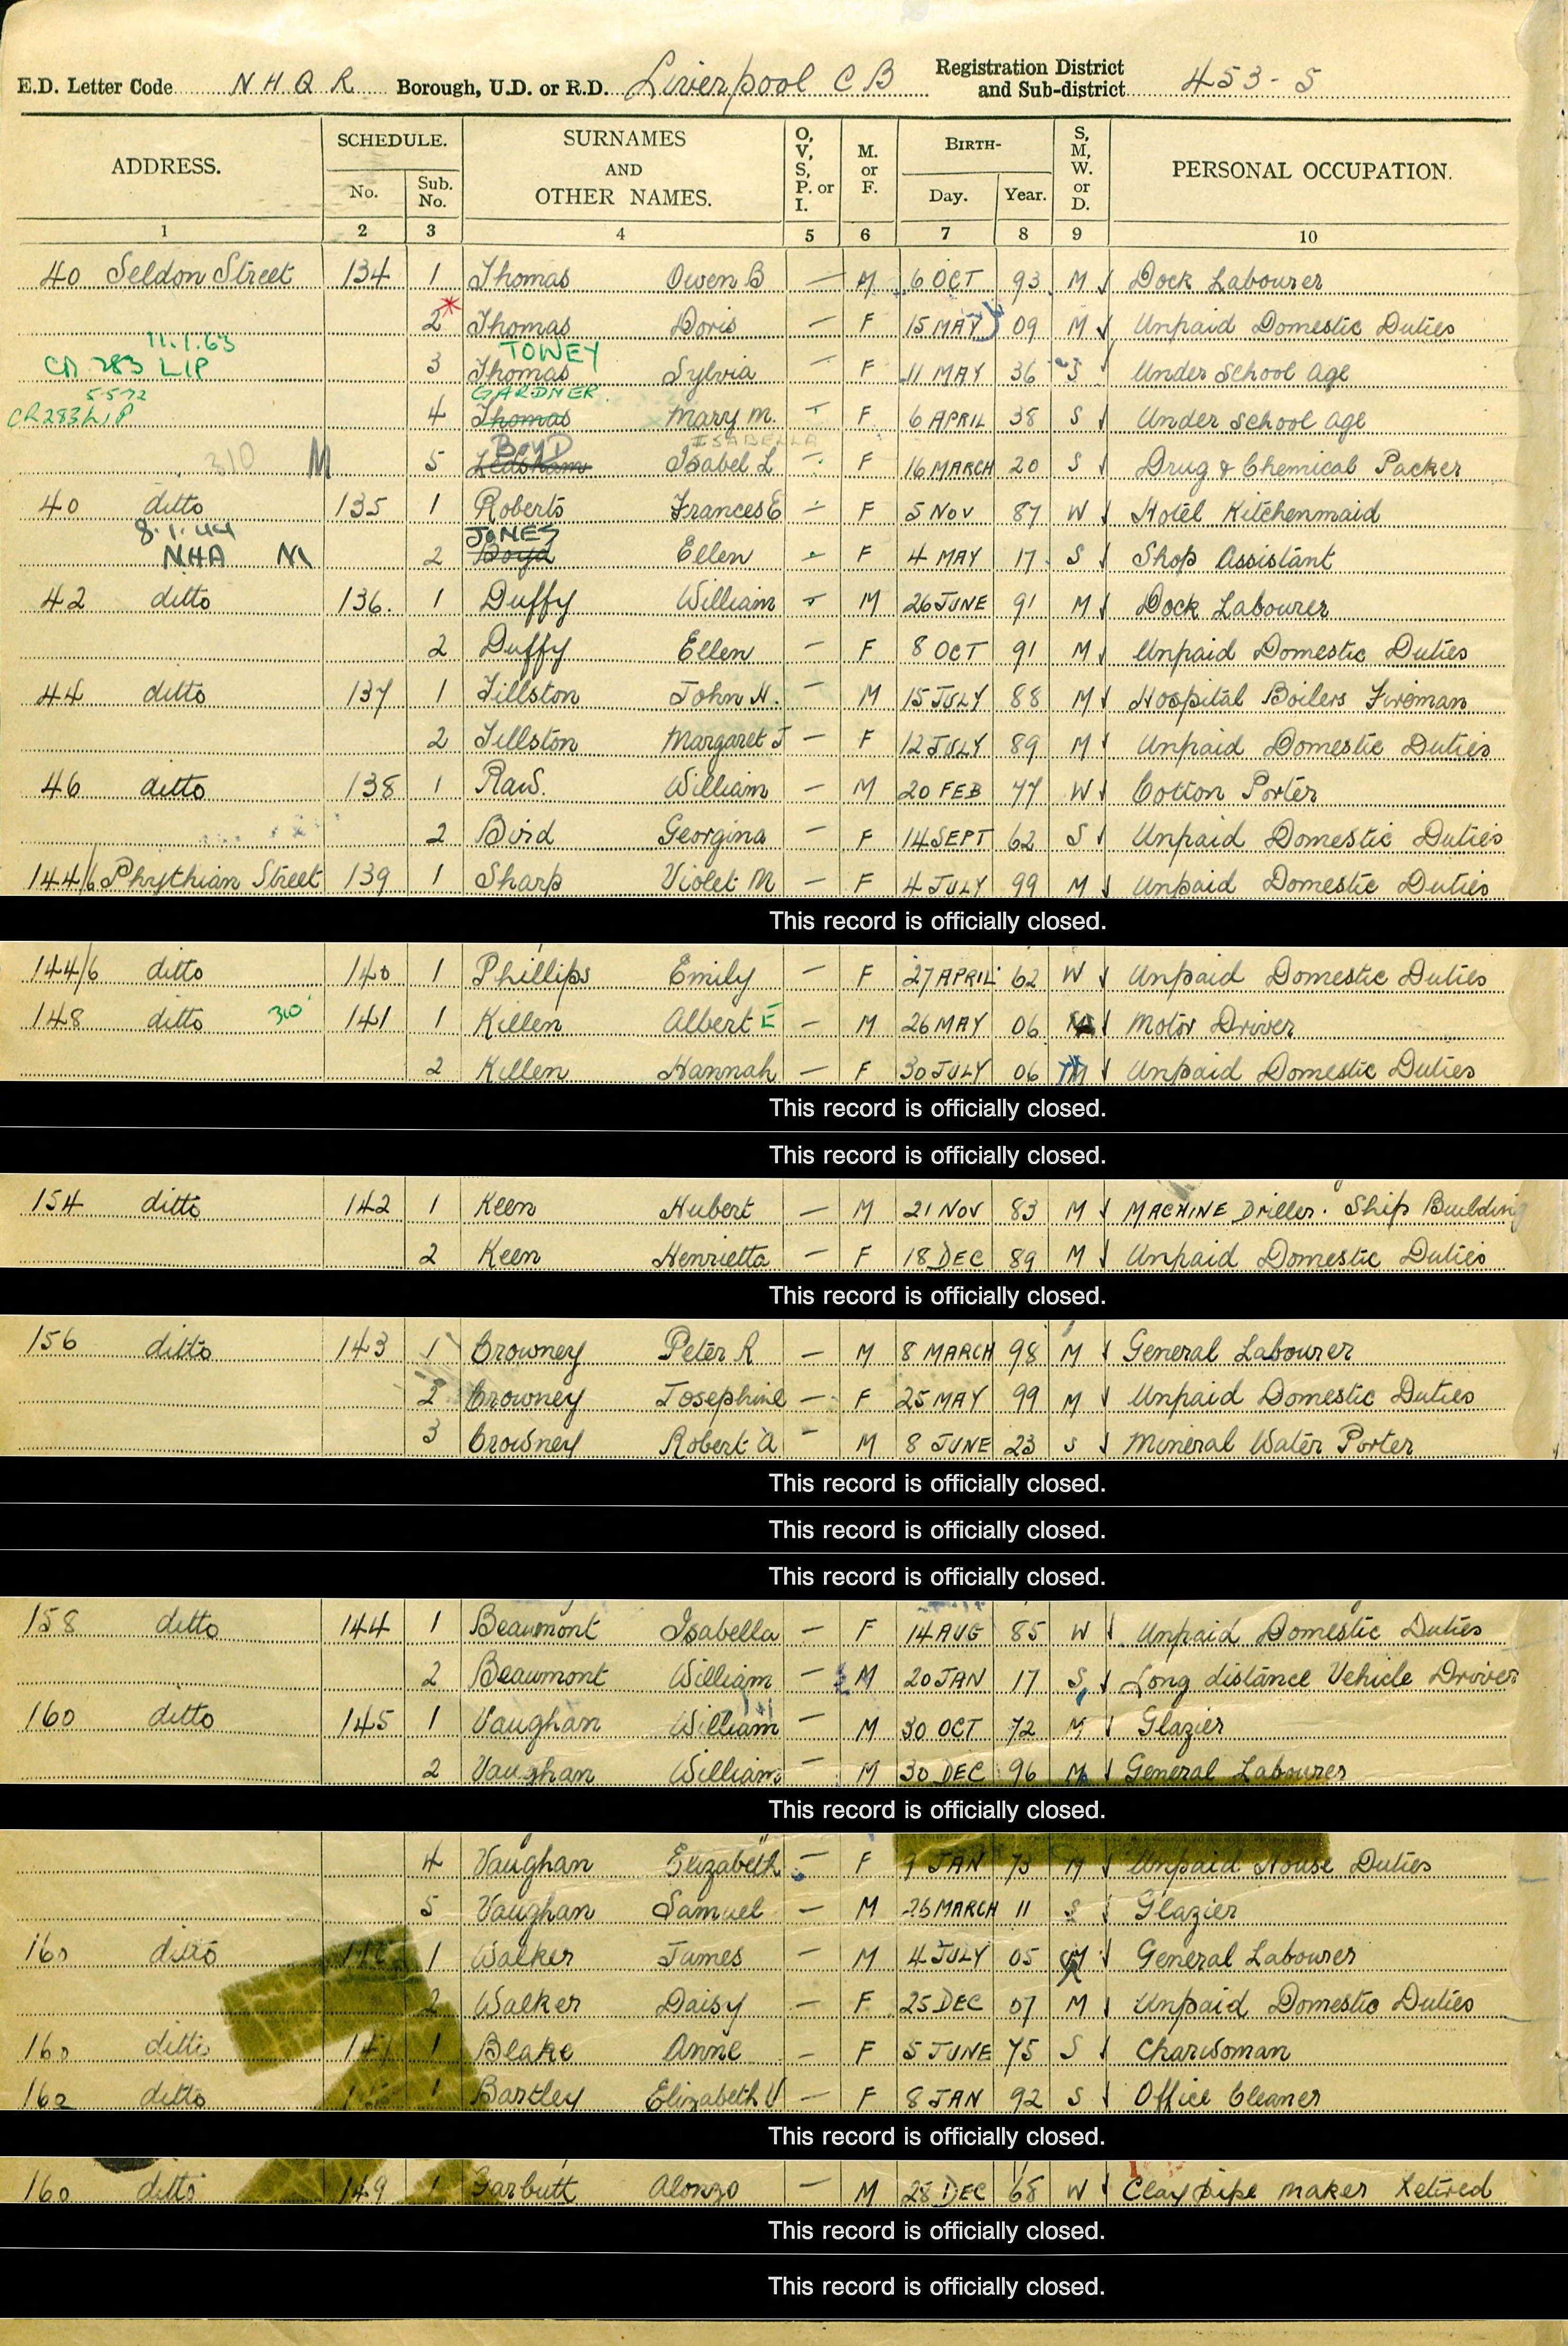 E.D. Letter Code N H Q R Borough, U.D. or R.D. Liverpool C B Registration District and Sub-district 453-5
ADDRESS. SCHEDULE. No. Sub. No. SURNAMES AND OTHER NAMES. O, V, S, P. or I. M. or F. BIRTH- Day. Year. S, M, W. or D. PERSONAL OCCUPATION.
1 2 3 4 5 6 7 8 9 10
40 Seldon Street 134 1 Thomas Owen B — M 6 OCT 93 M Dock Labourer
2* Thomas Doris — F 15 MAY 09 M Unpaid Domestic Duties
11.1.63 TOWEY
CR 283 LIP 3 Thomas Sylvia — F 11 MAY 36 S Under School Age
5572 GARDNER
CR283LIP 4 Thomas Mary M. — F 6 APRIL 38 S Under School Age
BOYD ISABELLA
310 M 5 Ledsham Isabel L — F 16 MARCH 20 S Drug & Chemical Packer
40 ditto 135 1 Roberts Frances E — F 5 NOV 87 W Hotel Kitchenmaid
8.1.44 JONES
NHA M 2 Boyd Ellen — F 4 MAY 17 S Shop Assistant
42 ditto 136. 1 Duffy William — M 26 JUNE 91 M Dock Labourer
2 Duffy Ellen — F 8 OCT 91 M Unpaid Domestic Duties
44 ditto 137 1 Tillston John H. — M 15 JULY 88 M Hospital Boilers Fireman
2 Tillston Margaret J — F 12 JULY 89 M Unpaid Domestic Duties
46 ditto 138 1 Raw. William — M 20 FEB 77 W Cotton Porter
2 Bird Georgina — F 14 SEPT 62 S Unpaid Domestic Duties
144/6 Phythian Street 139 1 Sharp Violet M — F 4 JULY 99 M Unpaid Domestic Duties
This record is officially closed.
144/6 ditto 140 1 Phillips Emily — F 27 APRIL 62 W Unpaid Domestic Duties
148 ditto 310 141 1 Killen Albert E — M 26 MAY 06 M Motor Driver
2 Killen Hannah — F 30 JULY 06 M Unpaid Domestic Duties
This record is officially closed.
This record is officially closed.
154 ditto 142 1 Keen Hubert — M 21 NOV 83 M MACHINE Driller. Ship Building
2 Keen Henrietta — F 18 DEC 89 M Unpaid Domestic Duties
This record is officially closed.
156 ditto 143 1 Crowney Peter R — M 8 MARCH 98 M General Labourer
2 Crowney Josephine — F 25 MAY 99 M Unpaid Domestic Duties
3 Crowney Robert A — M 8 JUNE 23 S Mineral Water Porter
This record is officially closed.
This record is officially closed.
This record is officially closed.
158 ditto 144 1 Beaumont Isabella — F 14 AUG 85 W Unpaid Domestic Duties
2 Beaumont William — M 20 JAN 17 S Long distance Vehicle Driver
160 ditto 145 1 Vaughan William — M 30 OCT 72 M Glazier
2 Vaughan William — M 30 DEC 96 M General Labourer
This record is officially closed.
4 Vaughan Elizabeth — F JAN 73 M Unpaid House Duties
5 Vaughan Samuel — M 25 MARCH 11 S Glazier
160 ditto 1 Walker James — M 4 JULY 05 M General Labourer
2 Walker Daisy — F 25 DEC 07 M Unpaid Domestic Duties
160 ditto 147 1 Blake Anne — F 5 JUNE 75 S Charwoman
162 ditto 1 Bartley Elizabeth V — F 8 JAN 92 S Office Cleaner
This record is officially closed.
160 ditto 149 1 Garbutt Alonzo — M 28 DEC 68 W Clay pipe maker Retired
This record is officially closed.
This record is officially closed.